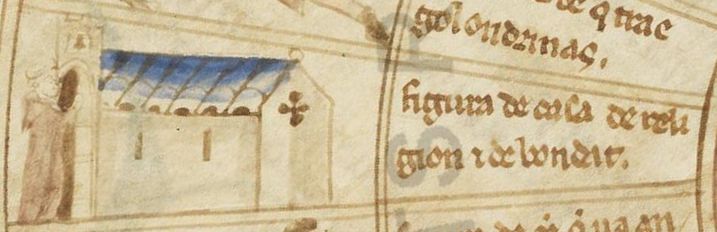 de q̃ trae
golondrinas.
figura de casa de reli
gion ⁊ de bondat.